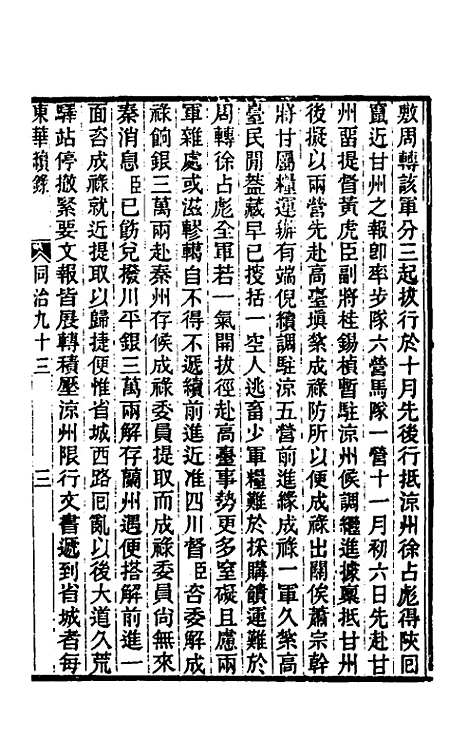 敷周轉該軍分三起拔行於十月先後行抵涼州徐占彪得陝囘
竄近甘州之報卽率步隊六營馬隊一營十一月初六日先赴甘
州畱提督黃虎臣副將桂錫楨暫駐涼州候調繼進據稟抵甘州
後擬以兩營先赴高臺塡紮成祿防所以便成祿出關俟蕭宗幹
將甘屬糧運辦有端倪續調駐涼五營前進緣成祿一軍久紮高
臺民閒葢藏早已搜括一空人逃畜少軍糧難於採購饋運難於
周轉徐占彪全軍若一氣開拔徑赴高臺事勢更多窒礙且慮兩
軍雜處或滋轇轕自不得不遞續前進近准四川督臣咨委解成
祿餉銀三萬兩赴秦州存候成祿委員提取而成祿委員尙無來
秦消息臣已飭兌撥川平銀三萬兩解存蘭州遇便搭解前進一
面咨成祿就近提取以歸捷便惟省城西路囘亂以後大道久荒
驛站停撤緊要文報皆展轉積壓涼州限行文書遞到省城者每
東華續錄 同治九十三 三